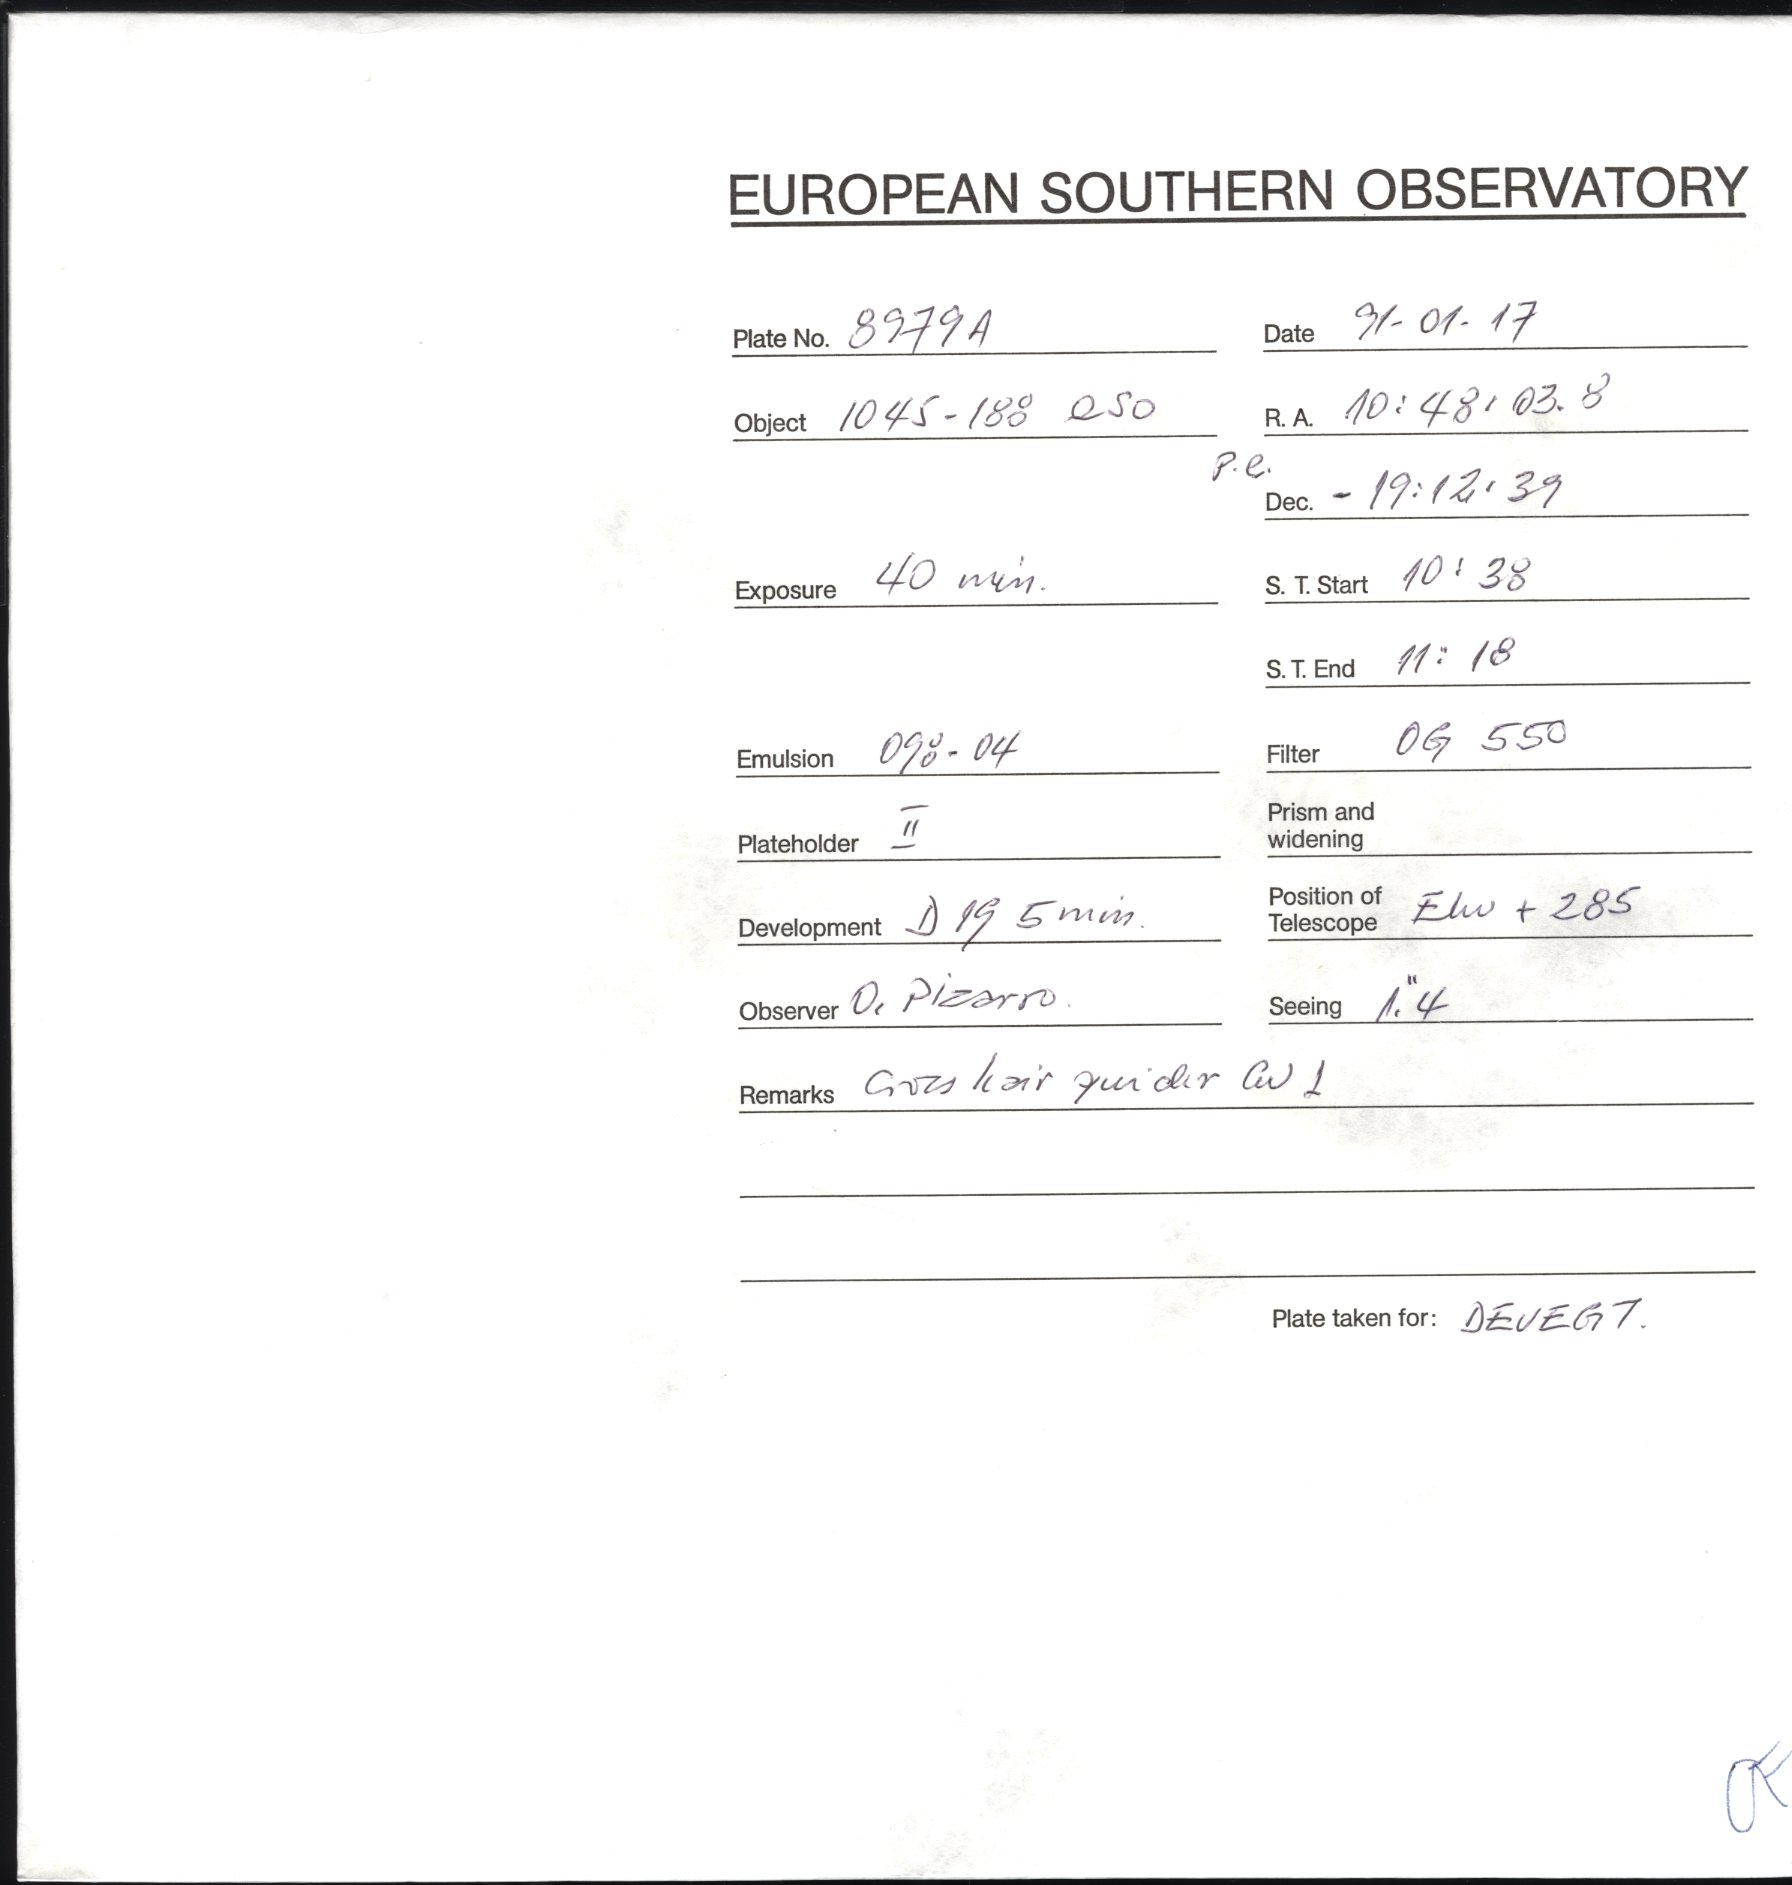 EUROPEAN SOUTHERN OBSERVATORY
Plate No. 8979A Date 91-01-17
Object 1045-188 QSO R. A. 10:48:03.8
P.e. Dec. -19:12:39
Exposure 40 min. S. T. Start 10:38
S. T. End 11:18
Emulsion 098-04 Filter OG 550
Plateholder II Prism and
widening
Development D 19 5 min. Position of
Telescope + 285
Observer O. Pizarro. Seeing 1."4
Remarks Cross hair guider
Plate taken for: DEVEGT.
OK